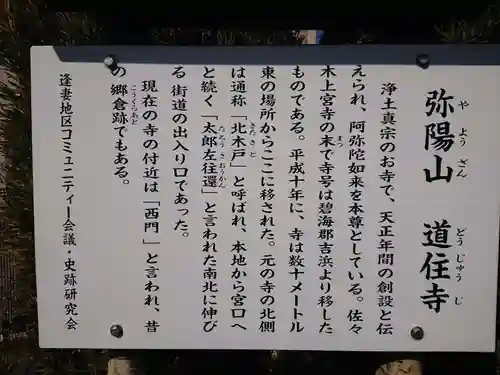 弥陽山　道住寺
や よう ざん　どう じゅう じ
浄土真宗のお寺で、天正年間の創設と伝
えられ、阿弥陀如来を本尊としている。佐々
木上宮寺の末で寺号は碧海郡吉浜より移した
まつ
ものである。平成十年に、寺は数十メートル
東の場所からここに移された。元の寺の北側
は通称「北木戸」と呼ばれ、本地から宮口へ
きた き ど
と続く「太郎左往還」と言われた南北に伸び
た ろう さ おうかん
る街道の出入り口であった。
現在の寺の付近は「西門」と言われ、昔
の郷倉跡でもある。
ごうくらあと
逢妻地区コミュニティー会議・史跡研究会